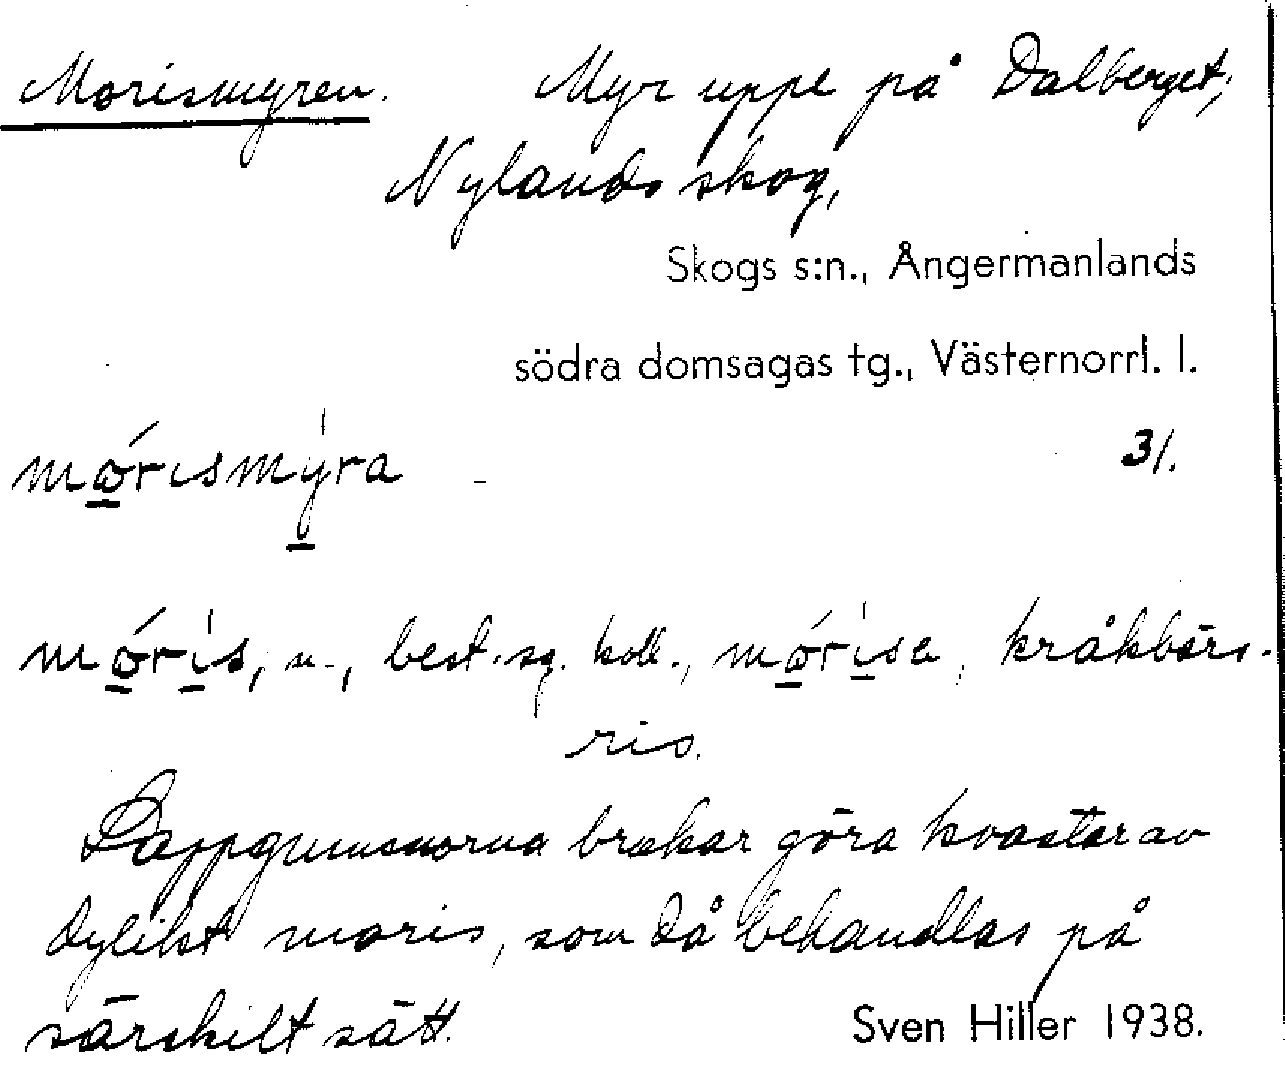 Morismyren. Myr uppe på Dalberget;
Nylands skog,
Skogs s:n., Ångermanlands
södra domsagas tg., Västernorrl. l.
mó̱rismýra̱ 31.
mó̱ri̱s, n., best. sg. koll., mó̱ri̱se, kråkbärs-
ris.
Lappgummorna brukar göra kvastar av
dylikt moris, som då behandlas på
särskilt sätt. Sven Hiller 1938.